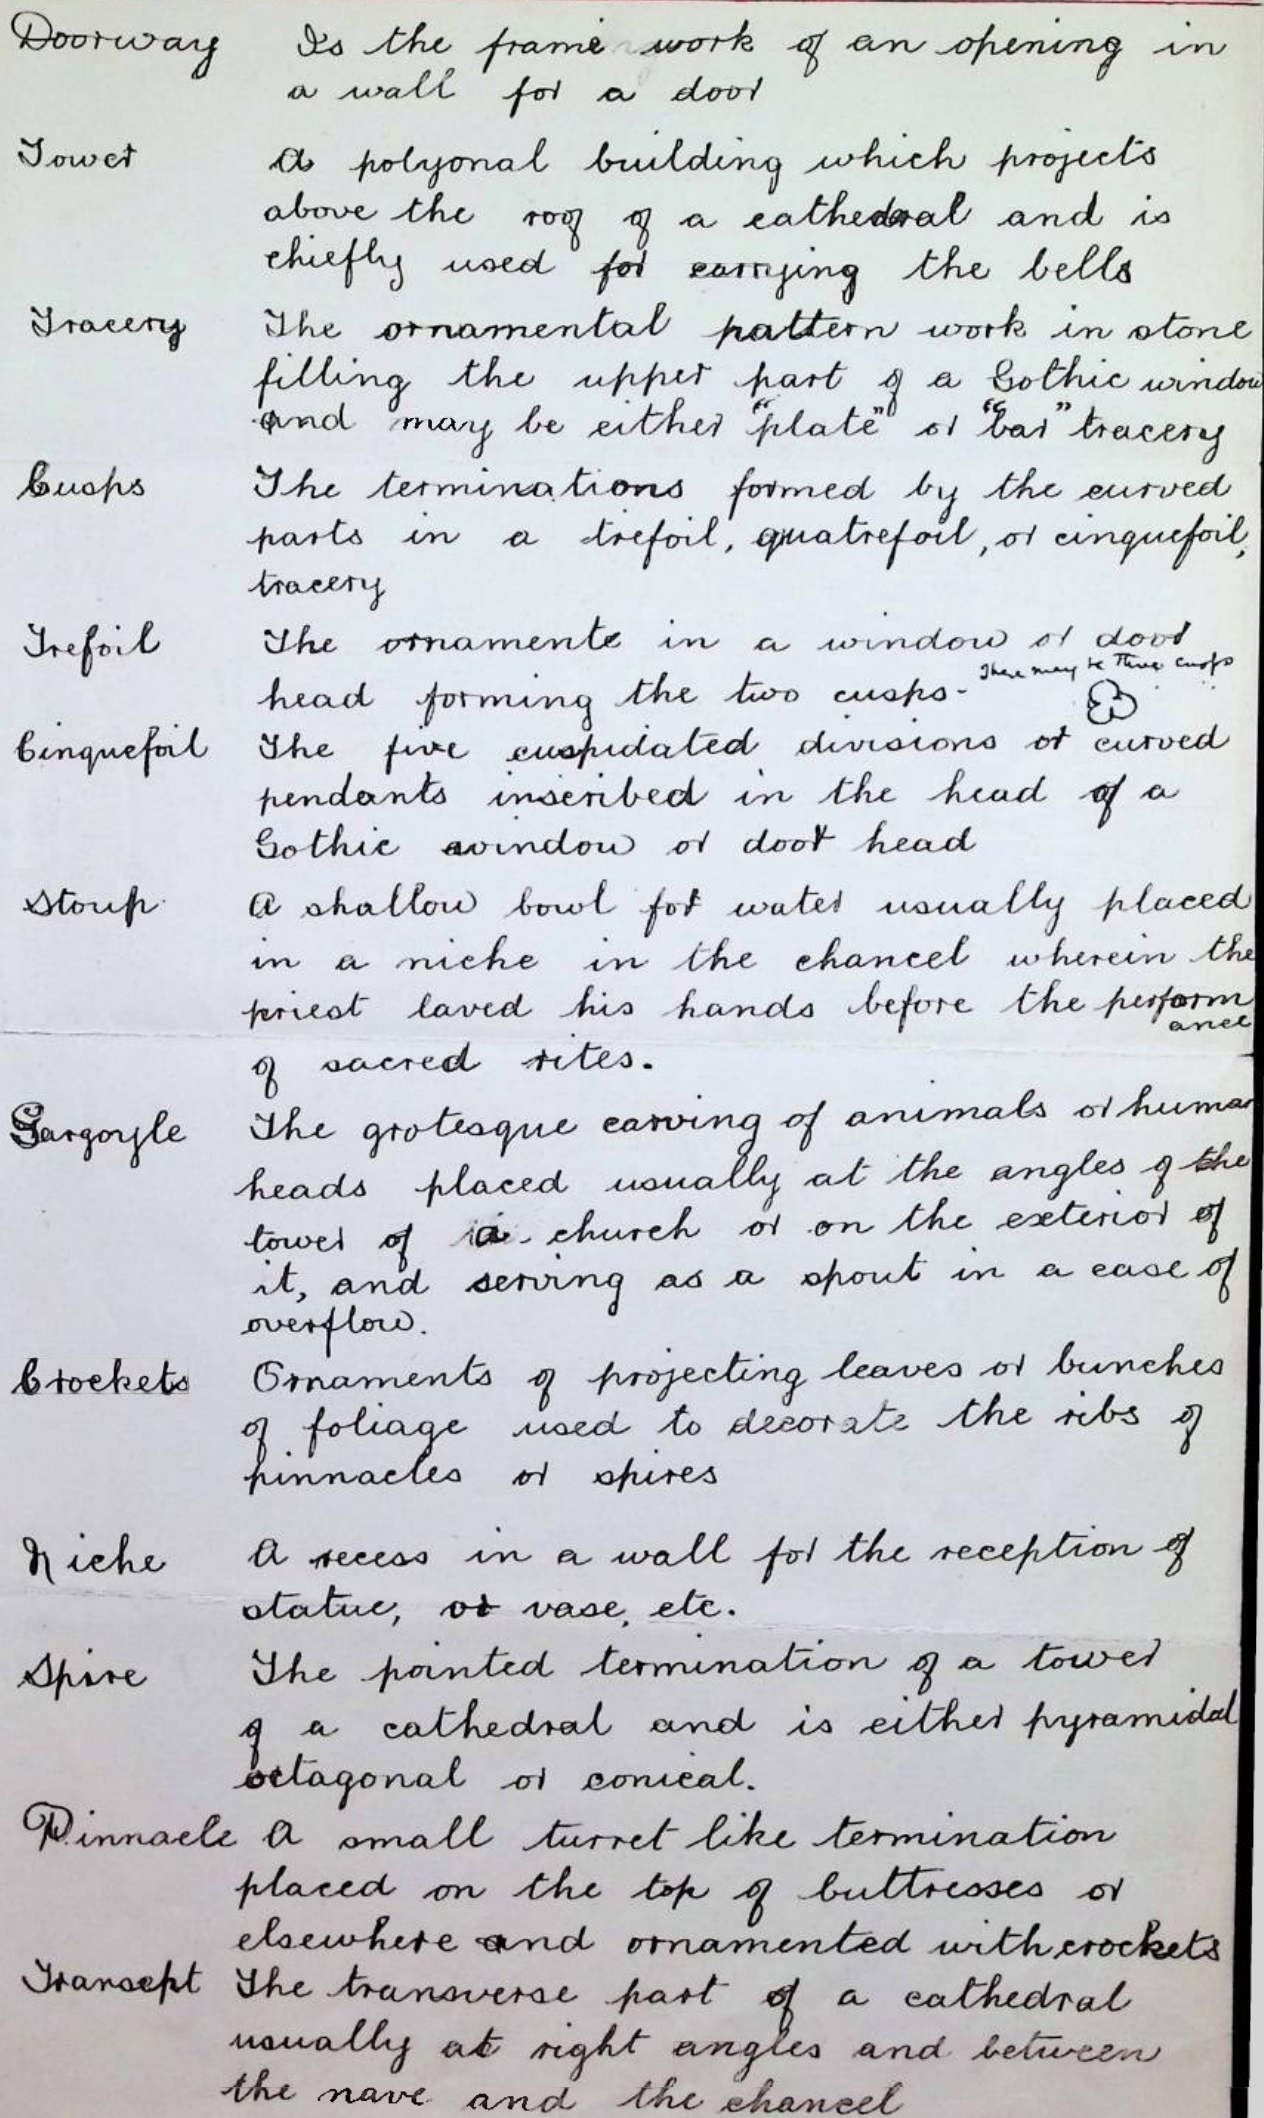 Doorway Is the frame work of an opening in
a wall for a door
Tower A polyonal building which projects
above the roof of a cathedral and is
chiefly used for carrying the bells
Tracery The ornamental pattern work in stone
filling the upper part of a Gothic window
and may be either "plate" or "bar" tracery
Cusps The terminations formed by the curved
parts in a trefoil, quatrefoil, or cinquefoil,
tracery
Trefoil The ornamente in a window or door
There may be three cusps
head forming the two cusps-
Cinquefoil The five cuspidated divisions or curved
pendants inscribed in the head of a
Gothic window or door head
Stoup A shallow bowl for water usually placed
in a niche in the chancel wherein the
priest laved his hands before the perform
ance
of sacred rites.
Gargoyle The grotesque carving of animals or human
heads placed usually at the angles of the
tower of a church or on the exterior of
it, and serving as a spout in a case of
overflow.
Crockets Ornaments of projecting leaves or bunches
of foliage used to decorate the ribs of
pinnacles or spires
Niche A recess in a wall for the reception of
statue, or vase, etc.
Spire The pointed termination of a tower
of a cathedral and is either pyramidal
octagonal or conical.
Pinnacle A small turret like termination
placed on the top of buttresses or
elsewhere and ornamented with crockets
Transept The transverse part of a cathedral
usually at right angles and between
the nave and the chancel